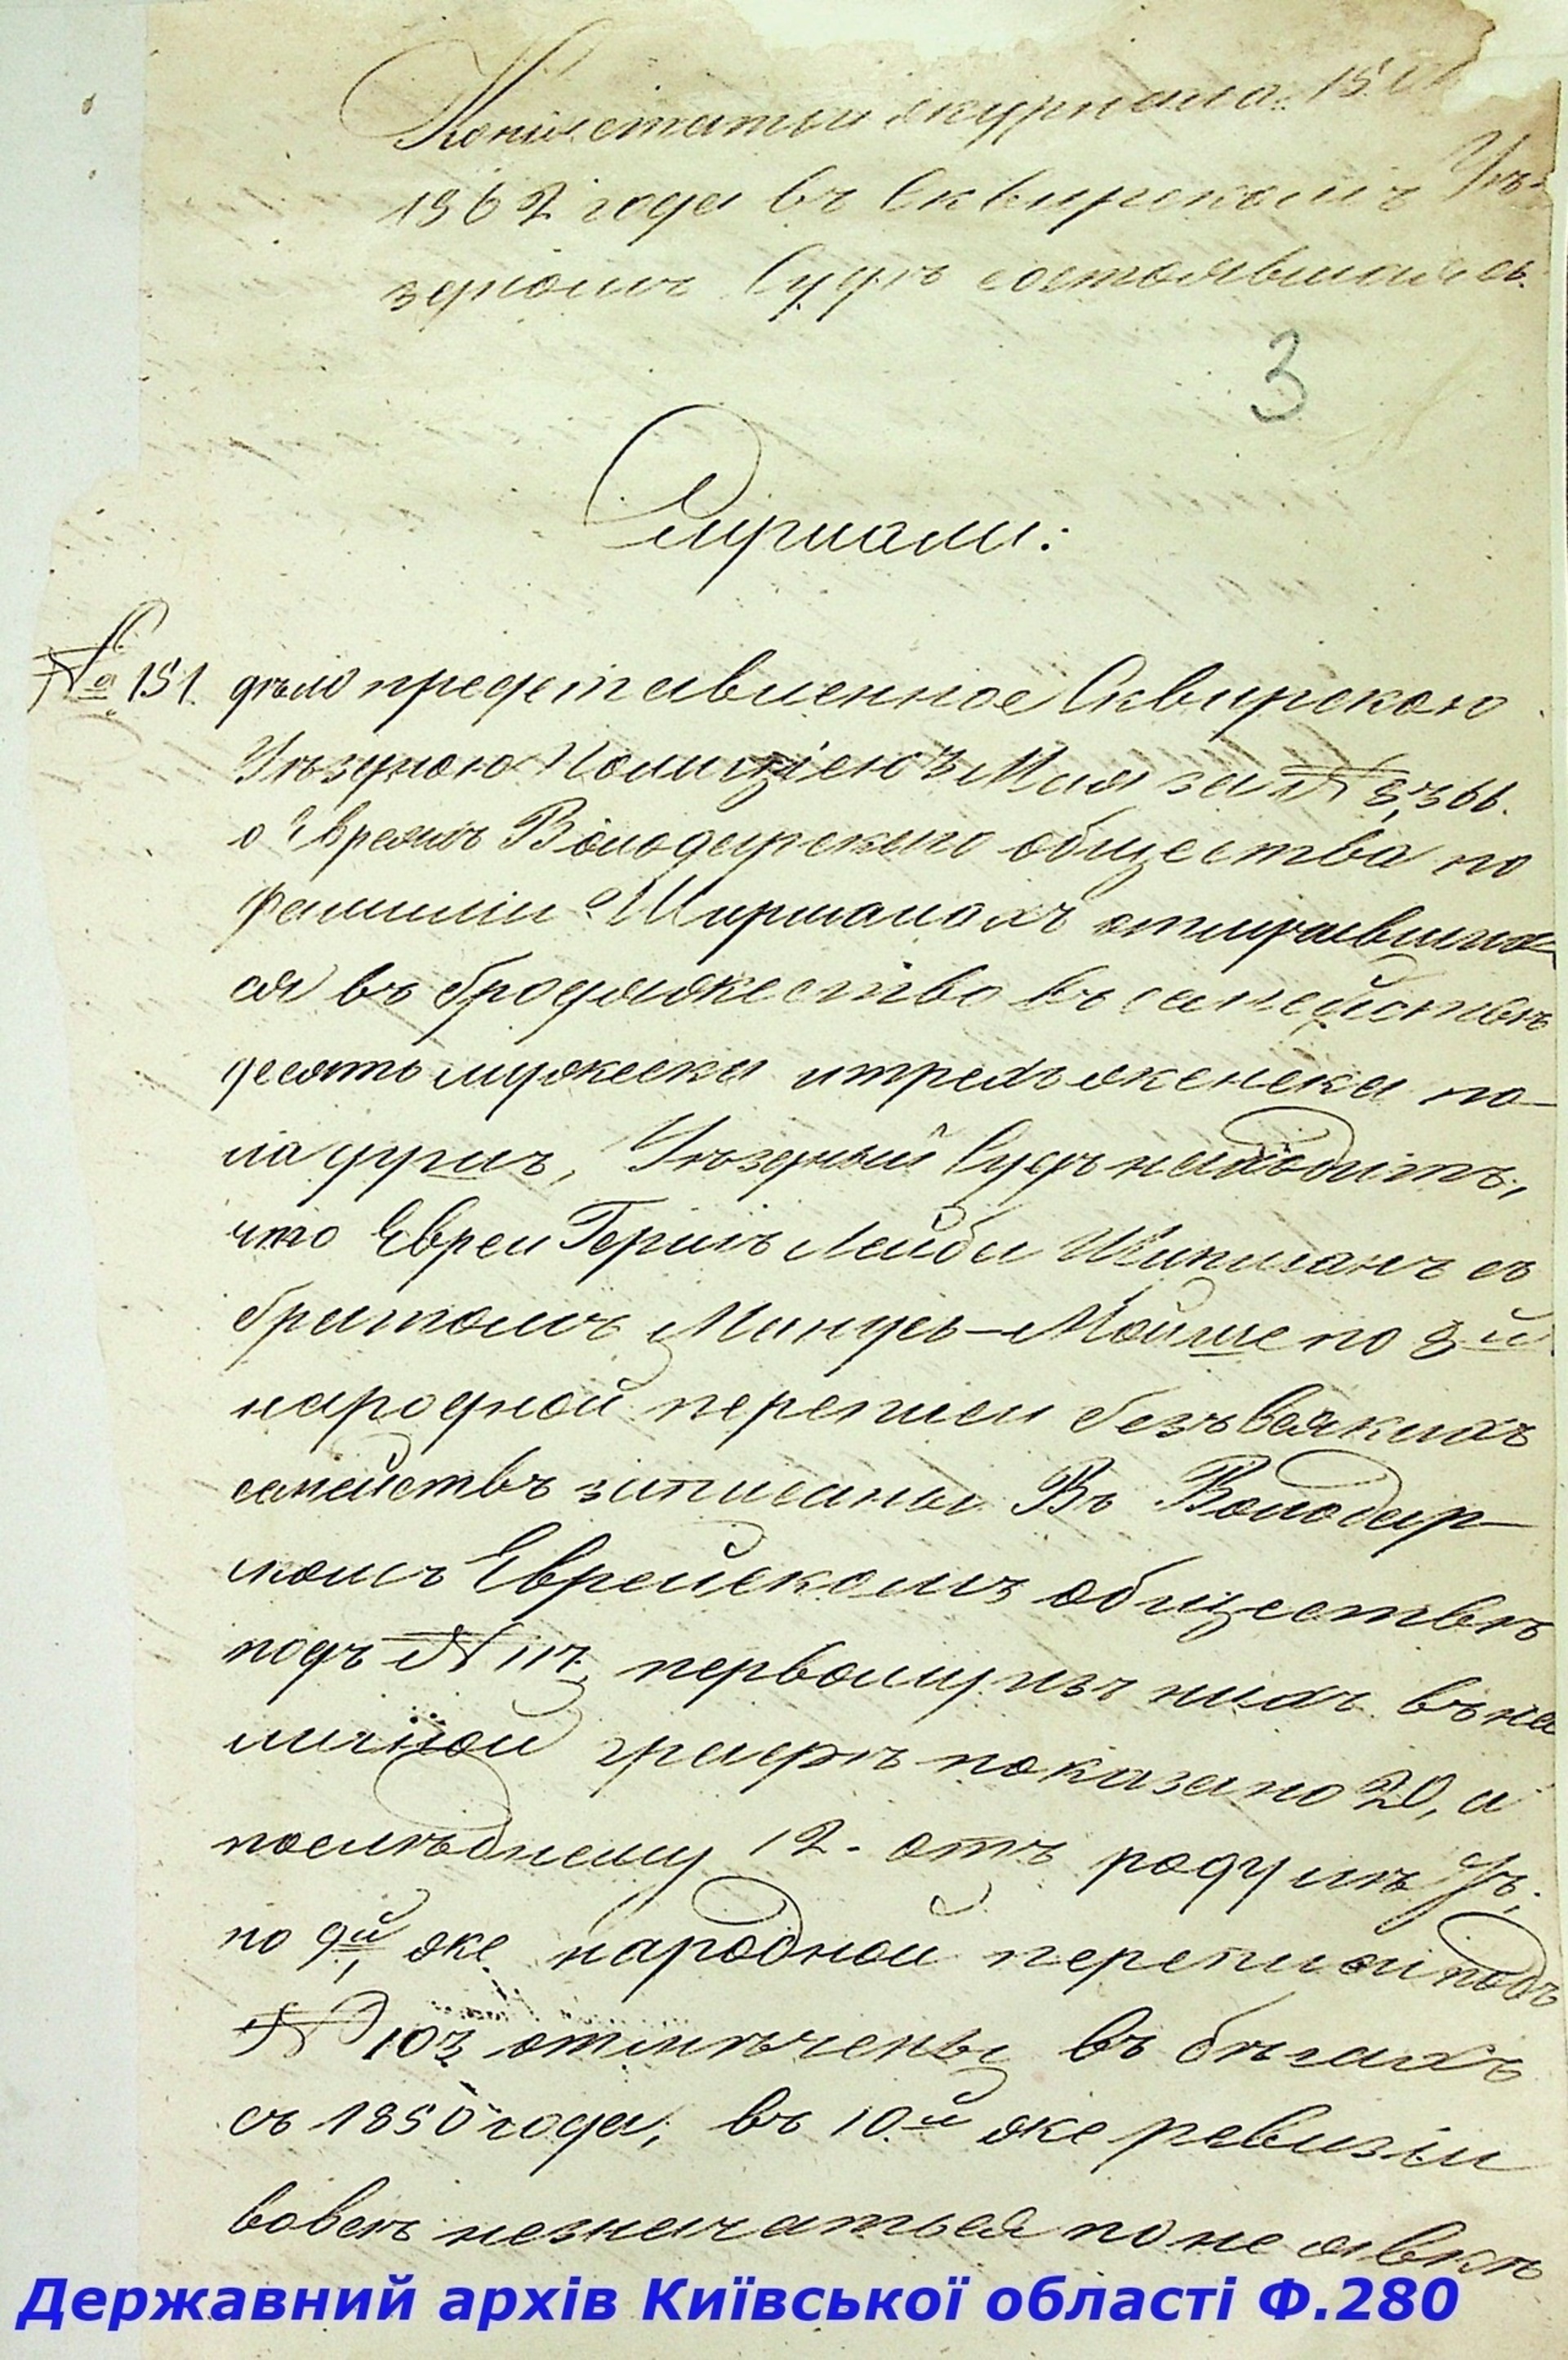 Копія статьи журнала 15
1862 года въ Сквирскомъ Уѣ-
здномъ Судѣ состоявшаяся.
3
Слушали:
№ 151. дѣло представленное Сквирскою
Уѣздною Полиціею 3 Мая за №
о Евреяхъ Володарскаго общества по
фамиліи Ширманахъ отлучавших
ся въ бродяжество въ семействѣ
десять мужеска и трехъ женска по-
ла душъ, Уѣздный Судъ находитъ,
что Евреи Гершъ Лейба Шипманъ съ
братомъ Мойше по 8й
народной переписи безъ всякихъ
семействъ записаны въ Володар-
скомъ Еврейскомъ обществѣ
подъ № 117, первому изъ нихъ въ на
личной графѣ показано 20, а
послѣднему 12. отъ роду лѣтъ,
по 9й же народной переписи подъ
№ 103 отмѣчены въ бѣгахъ
съ 1850 года, въ 10й же ревизіи
вовсе незначаться по неявкѣ
Державний архів Київської області Ф.280